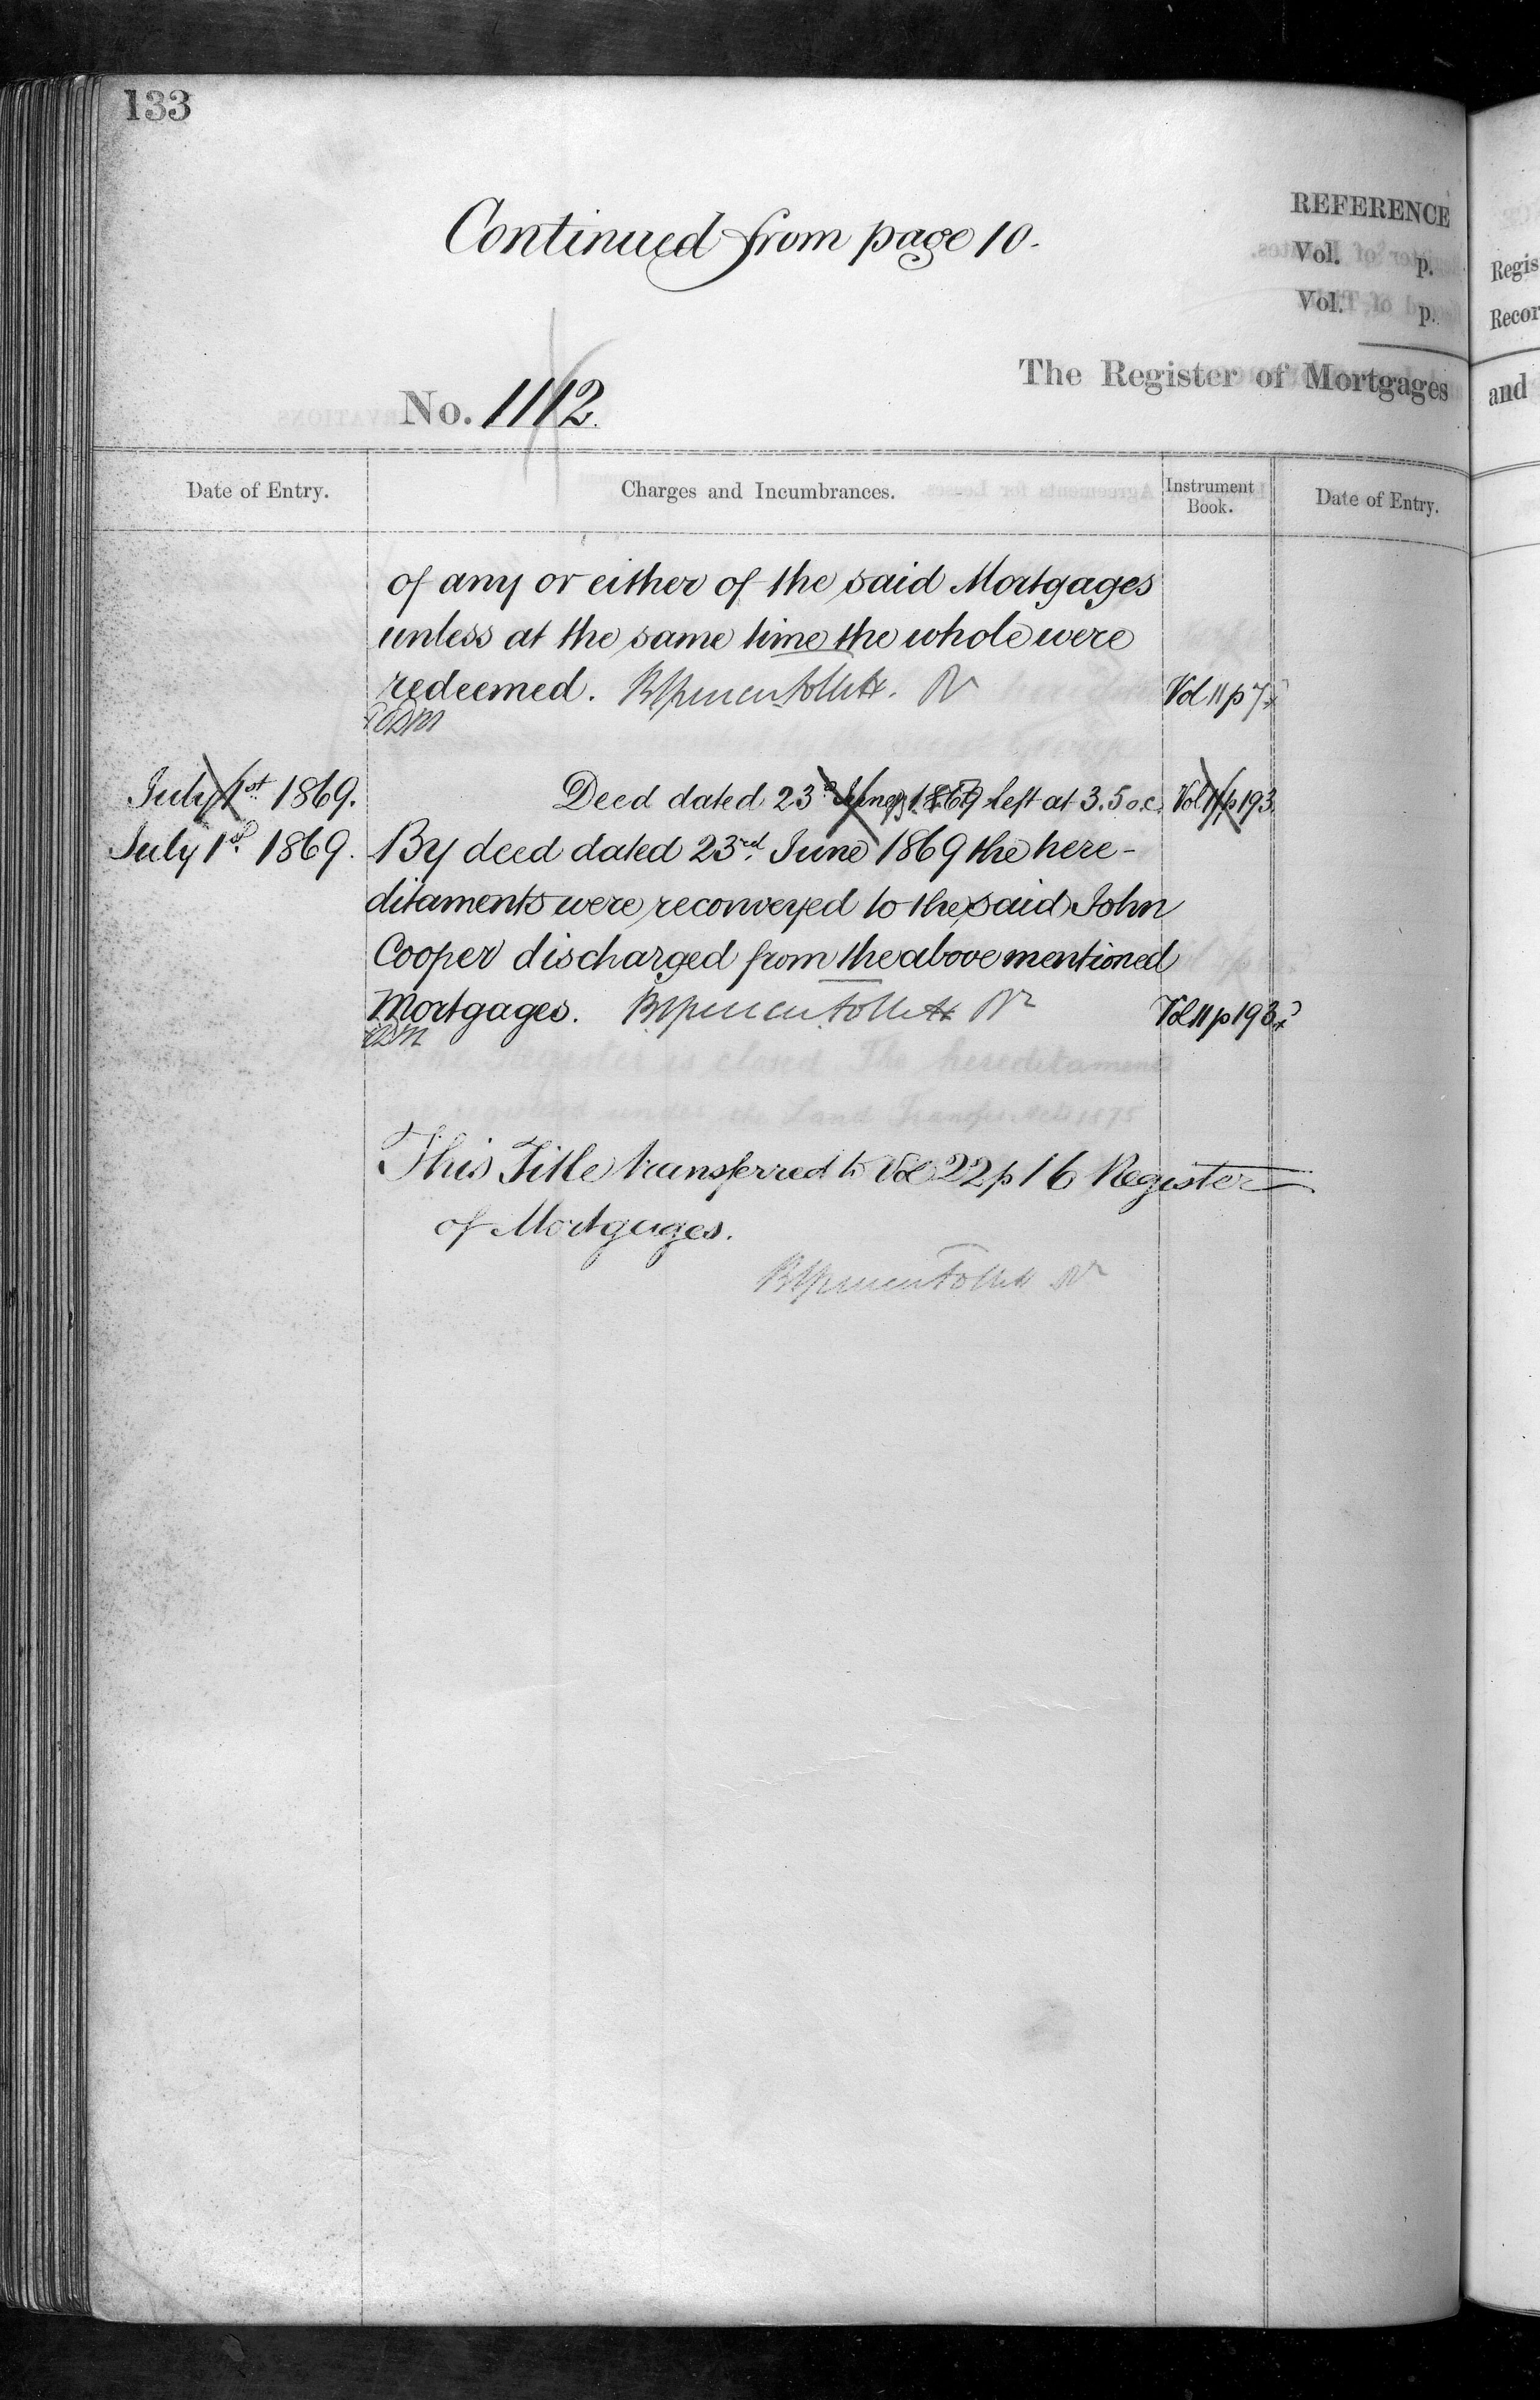 133
Continued from page 10.
REFERENCE
Vol. p.
Vol. p.
No. 1112.
The Register of Mortgages
Regis
Recor
and
Date of Entry.
Charges and Incumbrances.
Instrument Book.
Date of Entry.
of any or either of the said Mortgages
unless at the same time the whole were
redeemed.
Vol 11 p 7
July 1st 1869. Deed dated 23d June 1869 left at 3.5 o.c. Vol 11 p 193.
July 1st 1869. By deed dated 23rd June 1869 the here-
ditaments were reconveyed to the said John
Cooper discharged from the above mentioned
Mortgages. Vol 11 p 193
Register is closed The hereditaments
registered under the Land Transfer Act 1875
This Title transferred to Vol 22 p 16 Register
of Mortgages.